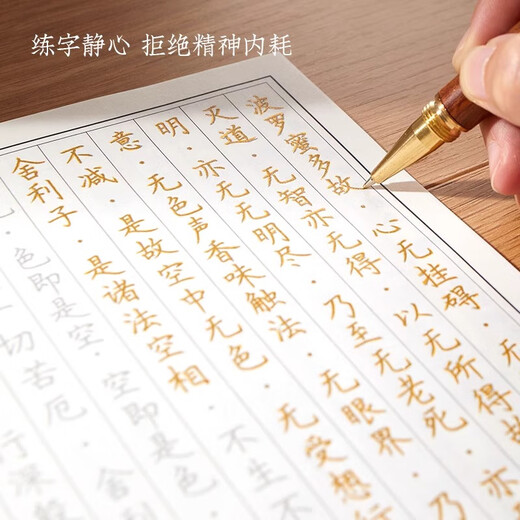 练字静心 拒绝精神内耗
波罗蜜多故·心无挂碍·无
灭道·无智亦无得·以无所得故
明·亦无无明尽·乃至无老死·亦
意·无色声香味触法·无眼界·
不减·是故空中无色·无受想行
舍利子·是诸法空相·不生不
色即是空·空即是色·
切苦厄·舍
行深般